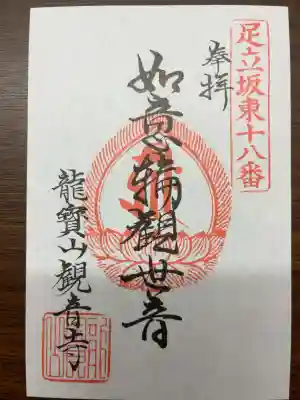 足立坂東十八番
奉拝
如意輪觀世音
龍寳山観音寺